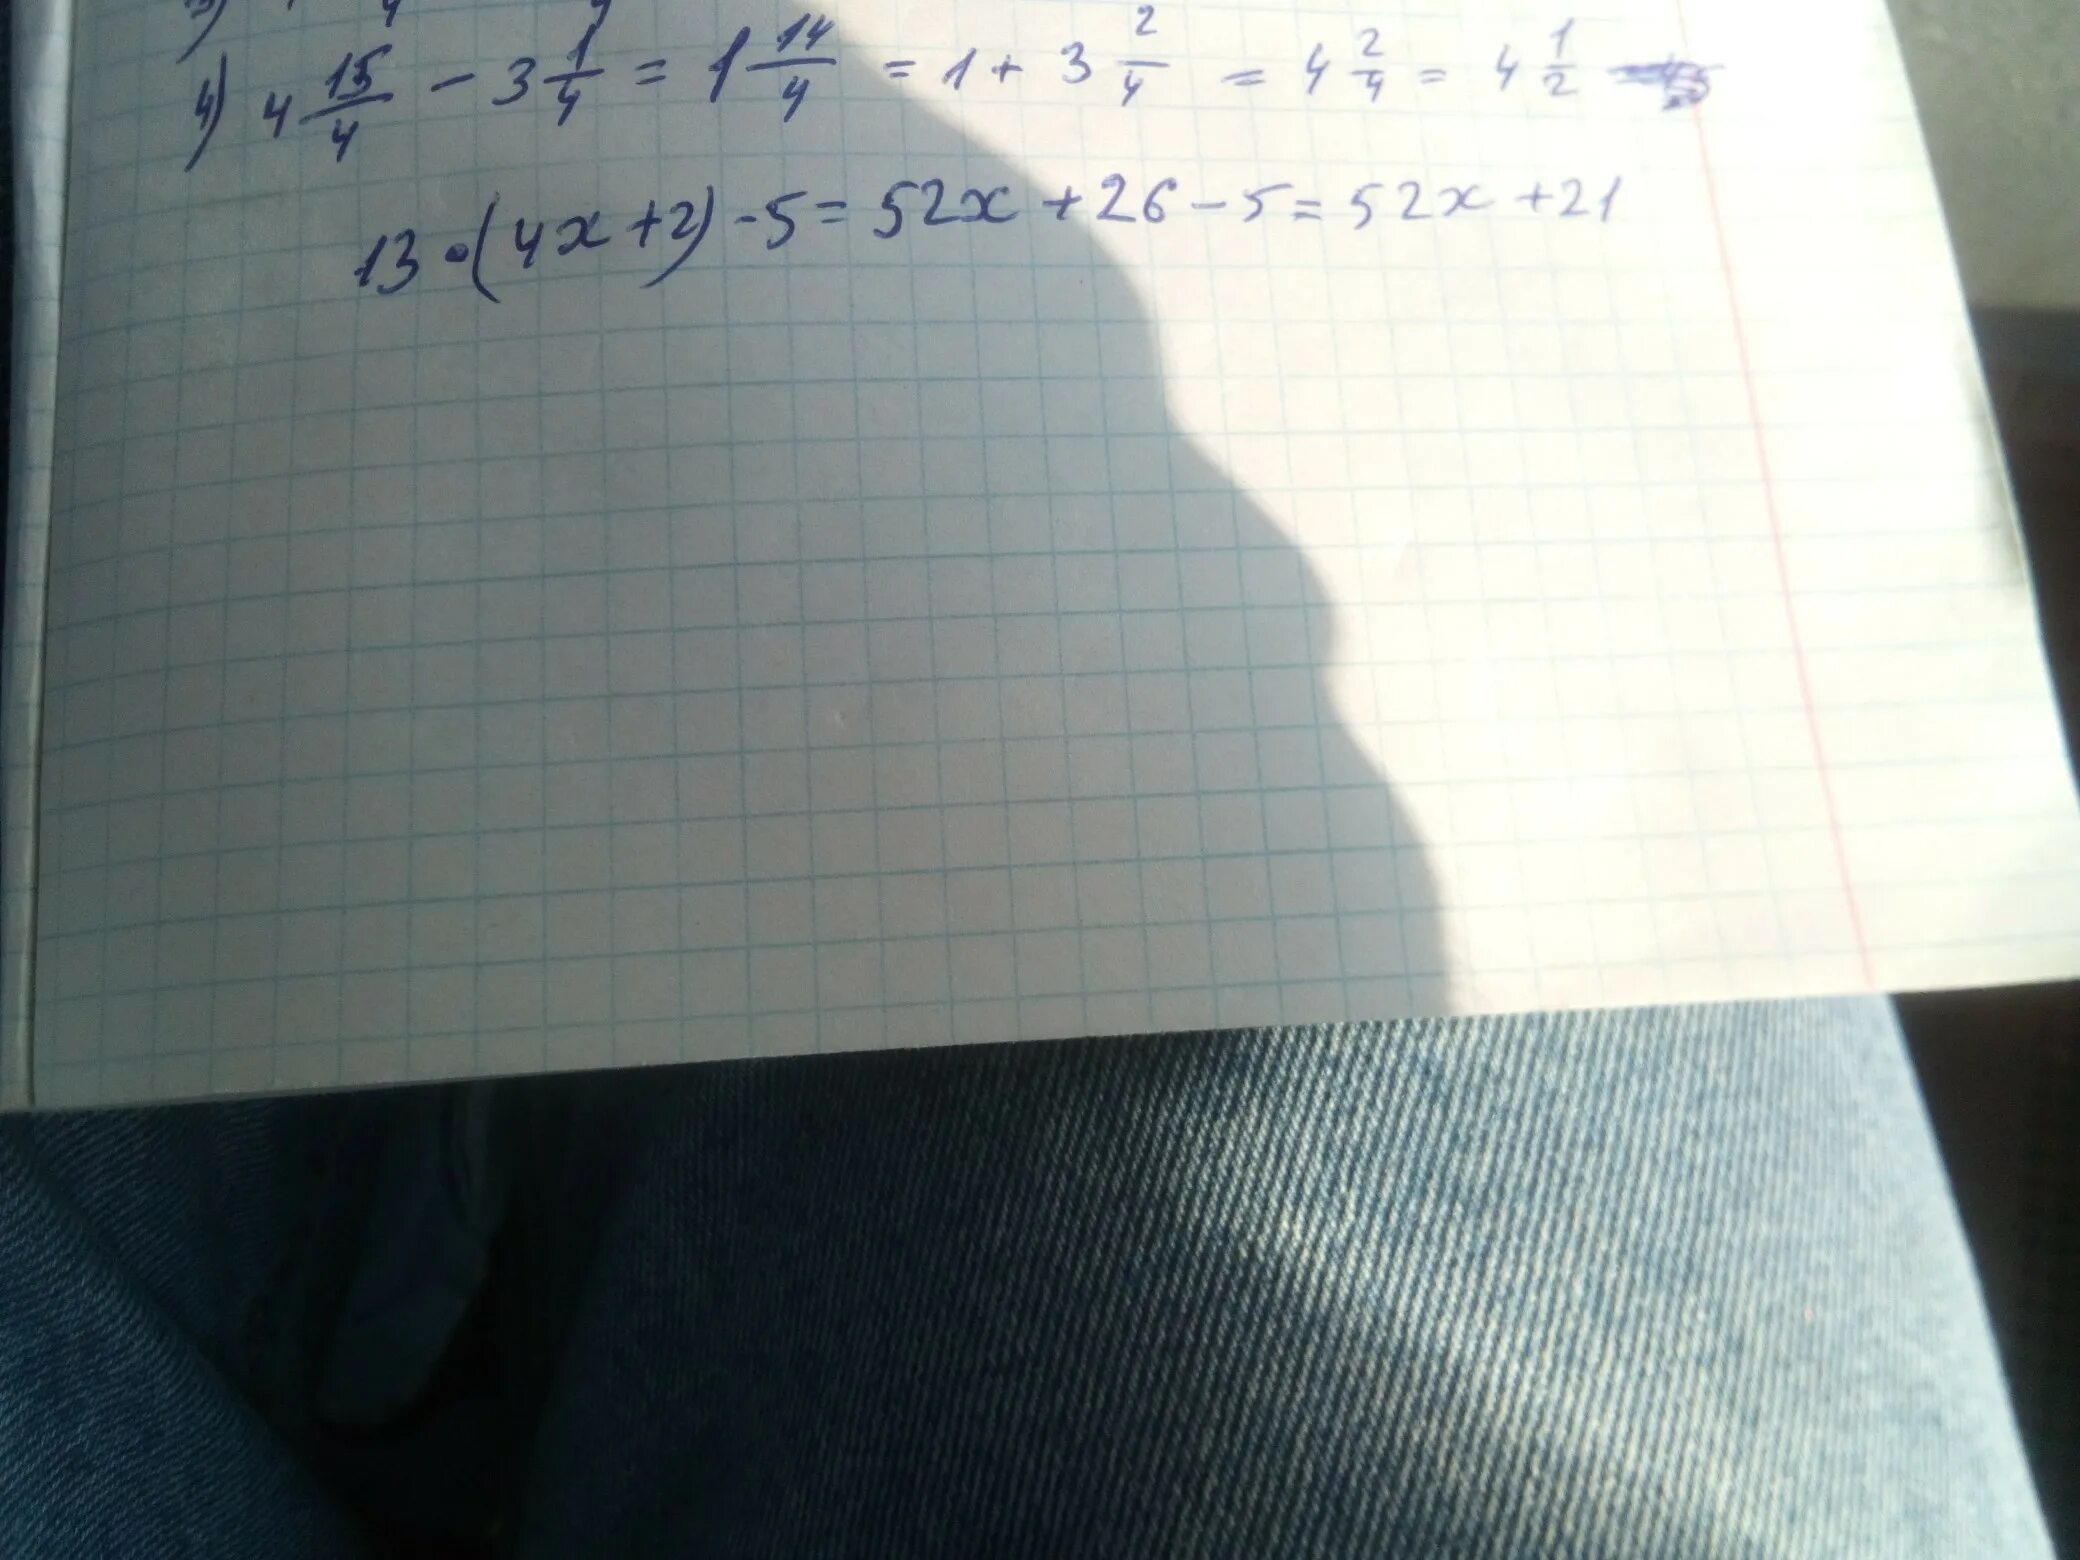 4) 4 15/4 - 3 1/4 = 1 14/4 = 1 + 3 2/4 = 4 2/4 = 4 1/2
13 • (4x + 2) - 5 = 52x + 26 - 5 = 52x + 21